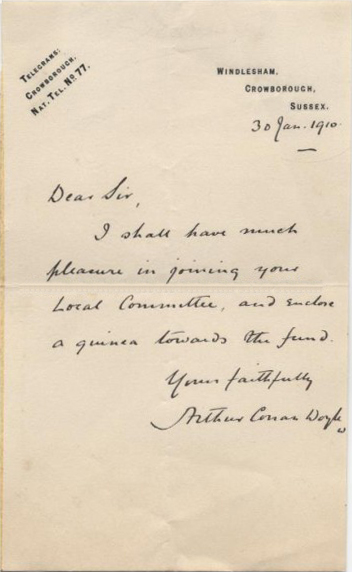 TELEGRAMS:
CROWBOROUGH.
NAT. TEL. No 77.
WINDLESHAM,
CROWBOROUGH,
SUSSEX.
30 Jan. 1910
Dear Sir,
I shall have much
pleasure in joining your
Local Committee, and enclose
a guinea towards the fund.
Yours faithfully
Arthur Conan Doyle